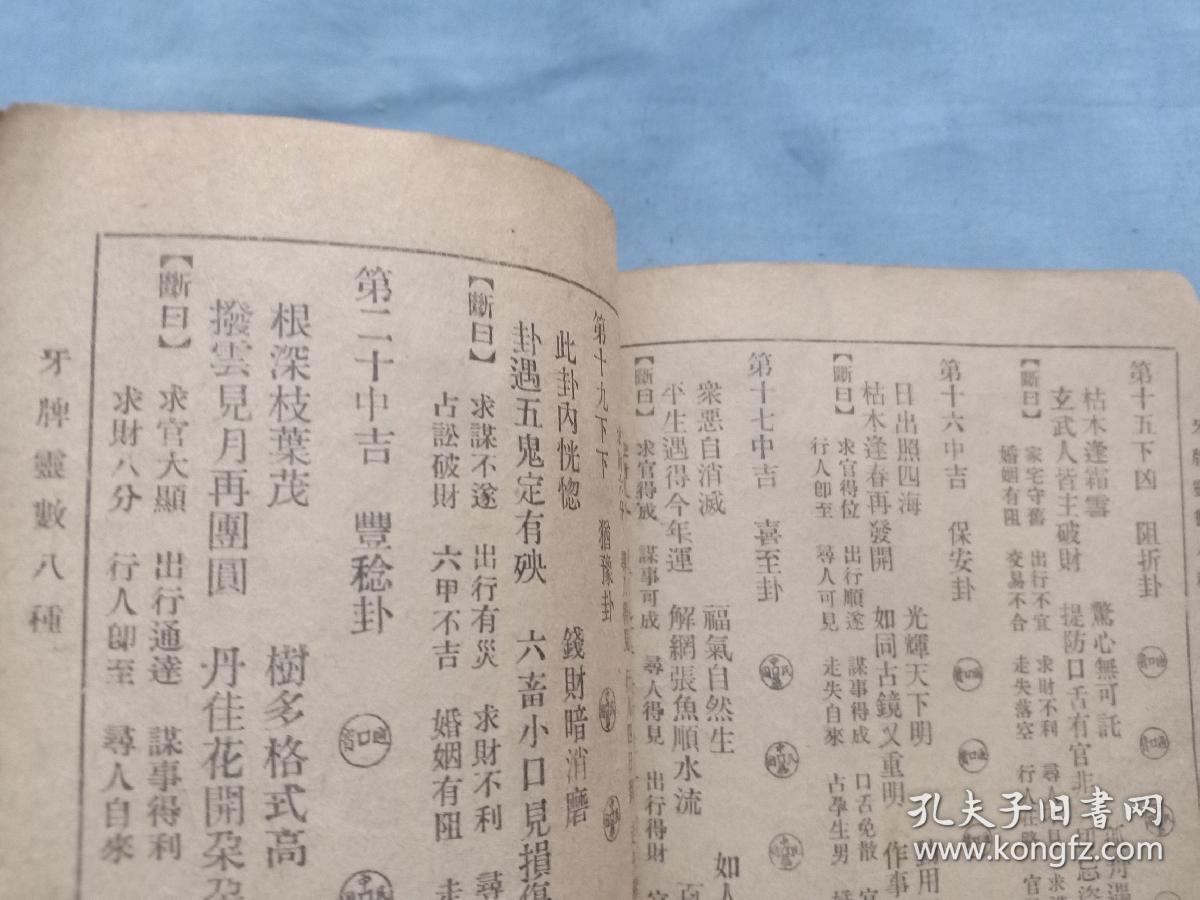 第十五下凶　阻折卦
枯木逢霜雪　驚心無可託
玄武人皆主破財　提防口舌有官非
【斷曰】　家宅守舊　出行不宜　求財不利　尋人
婚姻有阻　交易不合　走失落空　行人在路
第十六中吉　保安卦
日出照四海　光輝天下明
枯木逢春再發開　如同古鏡又重明　作事
【斷曰】　求官得位　出行順遂　謀事得成　口舌免散
行人卽至　尋人可見　走失自來　占孕生男
第十七中吉　喜至卦
衆惡自消滅　福氣自然生　如人
平生遇得今年運　解網張魚順水流
【斷曰】　求官得成　謀事可成　尋人得見　出行得財
第十九下下　猶豫卦
此卦內恍惚　錢財暗消磨
卦遇五鬼定有殃　六畜小口見損傷
【斷曰】　求謀不遂　出行有災　求財不利　尋
占訟破財　六甲不吉　婚姻有阻　走
第二十中吉　豐稔卦
根深枝葉茂　樹多格式高
撥雲見月再團圓　丹佳花開朶朶
【斷曰】　求官大顯　出行通達　謀事得利
求財八分　行人卽至　尋人自來
牙牌靈數八種
孔夫子旧书网
www.kongfz.com